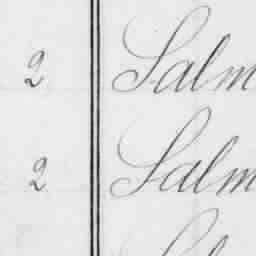 2 Salm
2 Salm